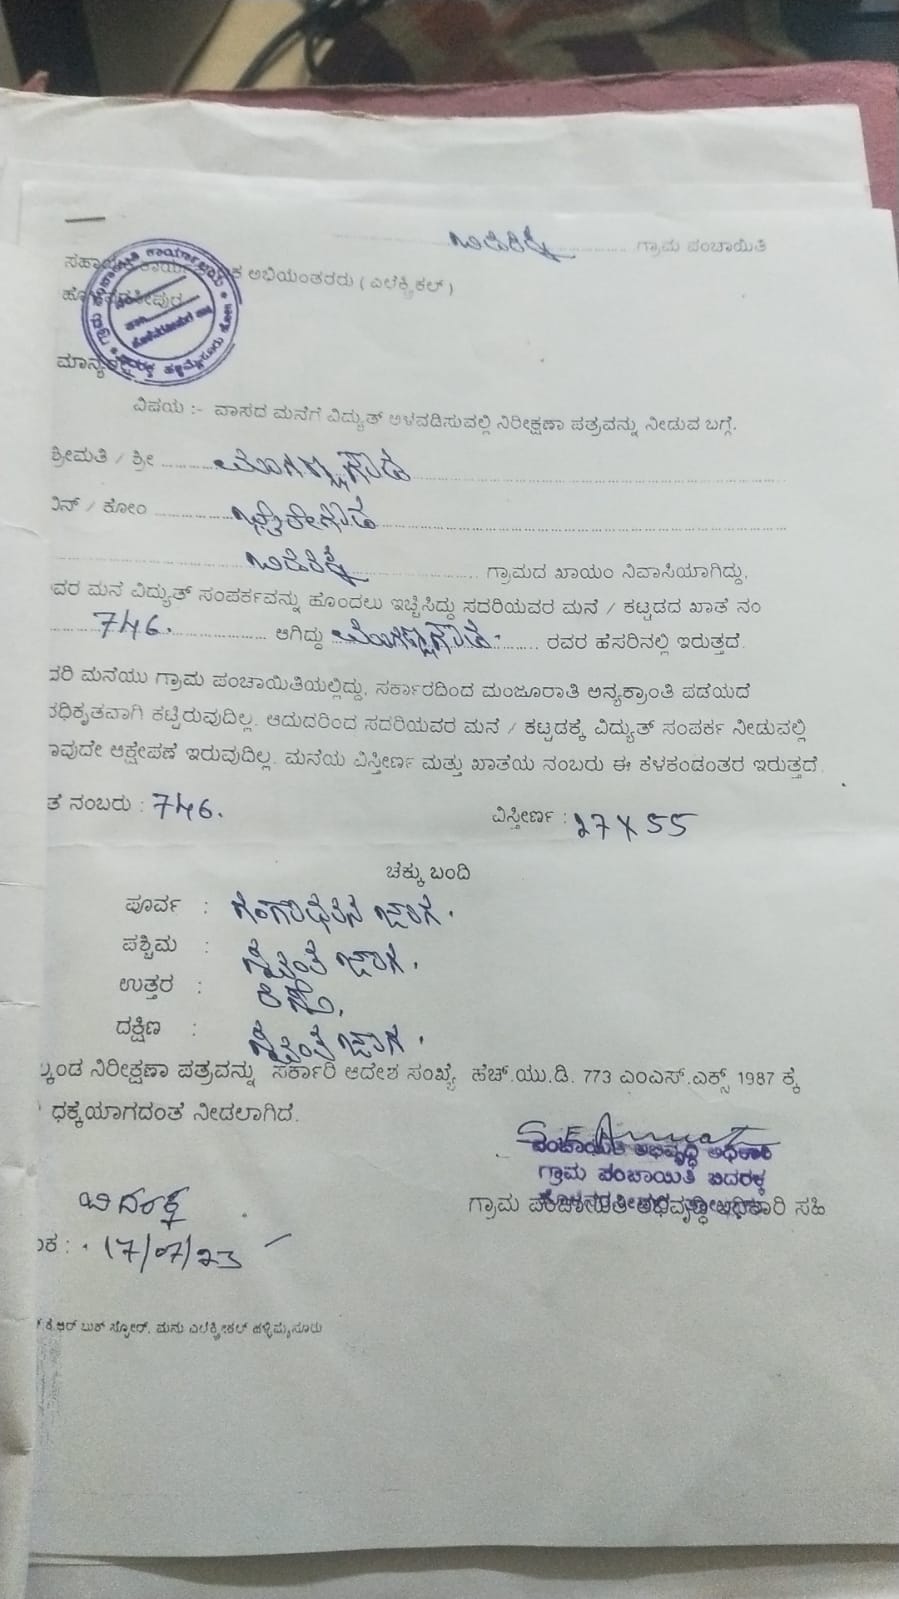 ಬಿದರಕ್ಕ ಗ್ರಾಮ ಪಂಚಾಯಿತಿ
ಅಭಿಯಂತರರು ( ಎಲೆಕ್ಟ್ರಿಕಲ್ )
ವಿಷಯ :- ವಾಸದ ಮನೆಗೆ ವಿದ್ಯುತ್ ಅಳವಡಿಸುವಲ್ಲಿ ನಿರೀಕ್ಷಣಾ ಪತ್ರವನ್ನು ನೀಡುವ ಬಗ್ಗೆ.
ಶ್ರೀಮತಿ / ಶ್ರೀ
ಬಿನ್ / ಕೋಂ
ಬಿದರಕ್ಕ ಗ್ರಾಮದ ಖಾಯಂ ನಿವಾಸಿಯಾಗಿದ್ದು,
ವರ ಮನೆ ವಿದ್ಯುತ್ ಸಂಪರ್ಕವನ್ನು ಹೊಂದಲು ಇಚ್ಚಿಸಿದ್ದು ಸದರಿಯವರ ಮನೆ / ಕಟ್ಟಡದ ಖಾತೆ ನಂ
746. ಆಗಿದ್ದು ರವರ ಹೆಸರಿನಲ್ಲಿ ಇರುತ್ತದೆ.
ದರಿ ಮನೆಯು ಗ್ರಾಮ ಪಂಚಾಯಿತಿಯಲ್ಲಿದ್ದು, ಸರ್ಕಾರದಿಂದ ಮಂಜೂರಾತಿ ಅನ್ಯಕ್ರಾಂತಿ ಪಡೆಯದೆ
ಧಿಕೃತವಾಗಿ ಕಟ್ಟಿರುವುದಿಲ್ಲ. ಆದುದರಿಂದ ಸದರಿಯವರ ಮನೆ / ಕಟ್ಟಡಕ್ಕೆ ವಿದ್ಯುತ್ ಸಂಪರ್ಕ ನೀಡುವಲ್ಲಿ
ಾವುದೇ ಆಕ್ಷೇಪಣೆ ಇರುವುದಿಲ್ಲ. ಮನೆಯ ವಿಸ್ತೀರ್ಣ ಮತ್ತು ಖಾತೆಯ ನಂಬರು ಈ ಕೆಳಕಂಡಂತರ ಇರುತ್ತದೆ.
ತೆ ನಂಬರು : 746. ವಿಸ್ತೀರ್ಣ : 27 X 55
ಚಕ್ಕು ಬಂದಿ
ಪೂರ್ವ : ಗಂಗಾಧರನ ಜಾಗ.
ಪಶ್ಚಿಮ : ಸ್ವಂತ ಜಾಗ.
ಉತ್ತರ : ರಸ್ತೆ.
ದಕ್ಷಿಣ : ಸ್ವಂತ ಜಾಗ.
ಕಂಡ ನಿರೀಕ್ಷಣಾ ಪತ್ರವನ್ನು ಸರ್ಕಾರಿ ಆದೇಶ ಸಂಖ್ಯೆ ಹೆಚ್.ಯು.ಡಿ. 773 ಎಂಎಸ್.ಎಕ್ಸ್ 1987 ಕ್ಕೆ
ಧಕ್ಕೆಯಾಗದಂತೆ ನೀಡಲಾಗಿದೆ.
ಪಂಚಾಯಿತಿ ಅಭಿವೃದ್ಧಿ ಅಧಿಕಾರಿ
ಗ್ರಾಮ ಪಂಚಾಯಿತಿ ಬಿದರಕ್ಕ
ಗ್ರಾಮ ಪಂಚಾಯಿತಿ ಅಭಿವೃದ್ಧಿ ಅಧಿಕಾರಿ ಸಹಿ
ಬಿದರಕ್ಕ
ಂಕ : 17/07/23
ಕೆ.ಆರ್ ಬುಕ್ ಸ್ಟೋರ್. ಮನು ಎಲೆಕ್ಟ್ರಿಕಲ್ ಹಳ್ಳಿಮೈಸೂರು